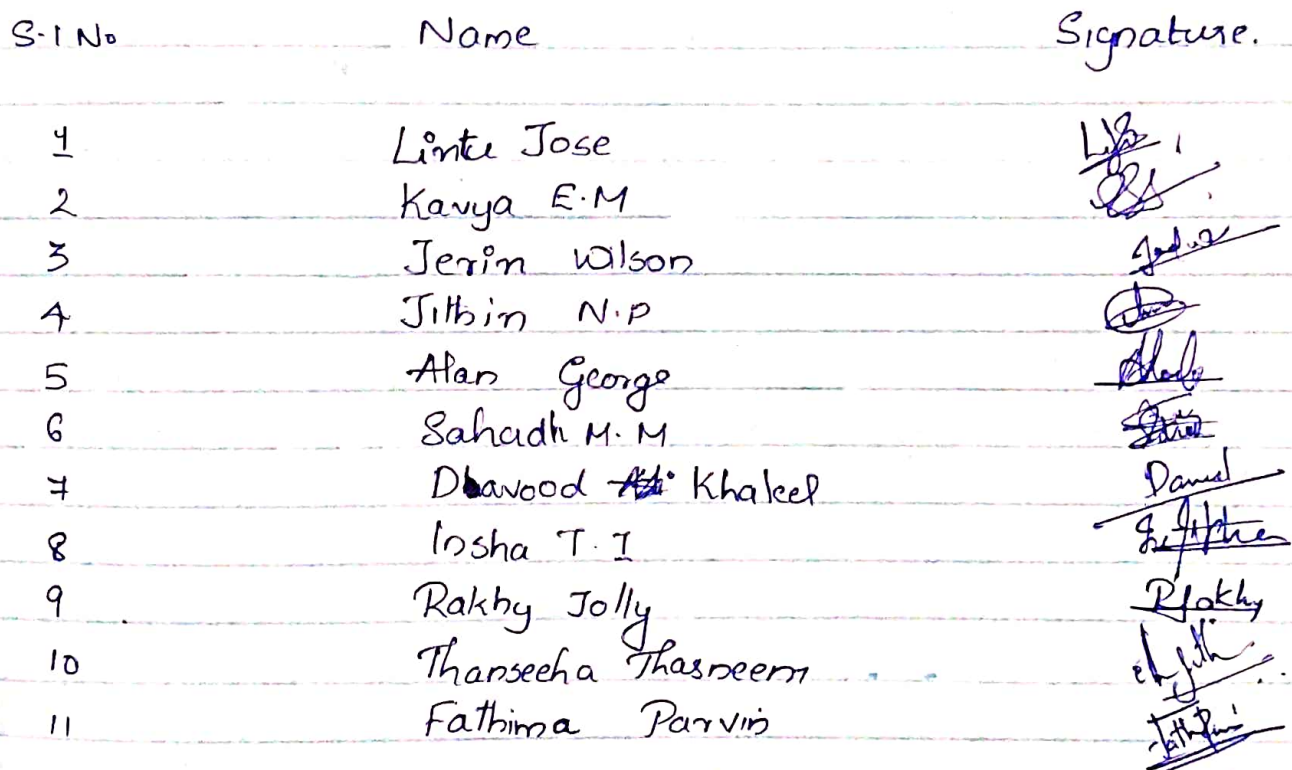 S.I No Name Signature.
1 Lintu Jose
2 Kavya E.M
3 Jerin Wilson
4 Jithin N.P
5 Alan George
6 Sahadh M.M
7 Dhavood Khaleel
8 Insha T.I
9 Rakhy Jolly RJokhy
10 Thanseeha Thasneem
11 Fathima Parvin